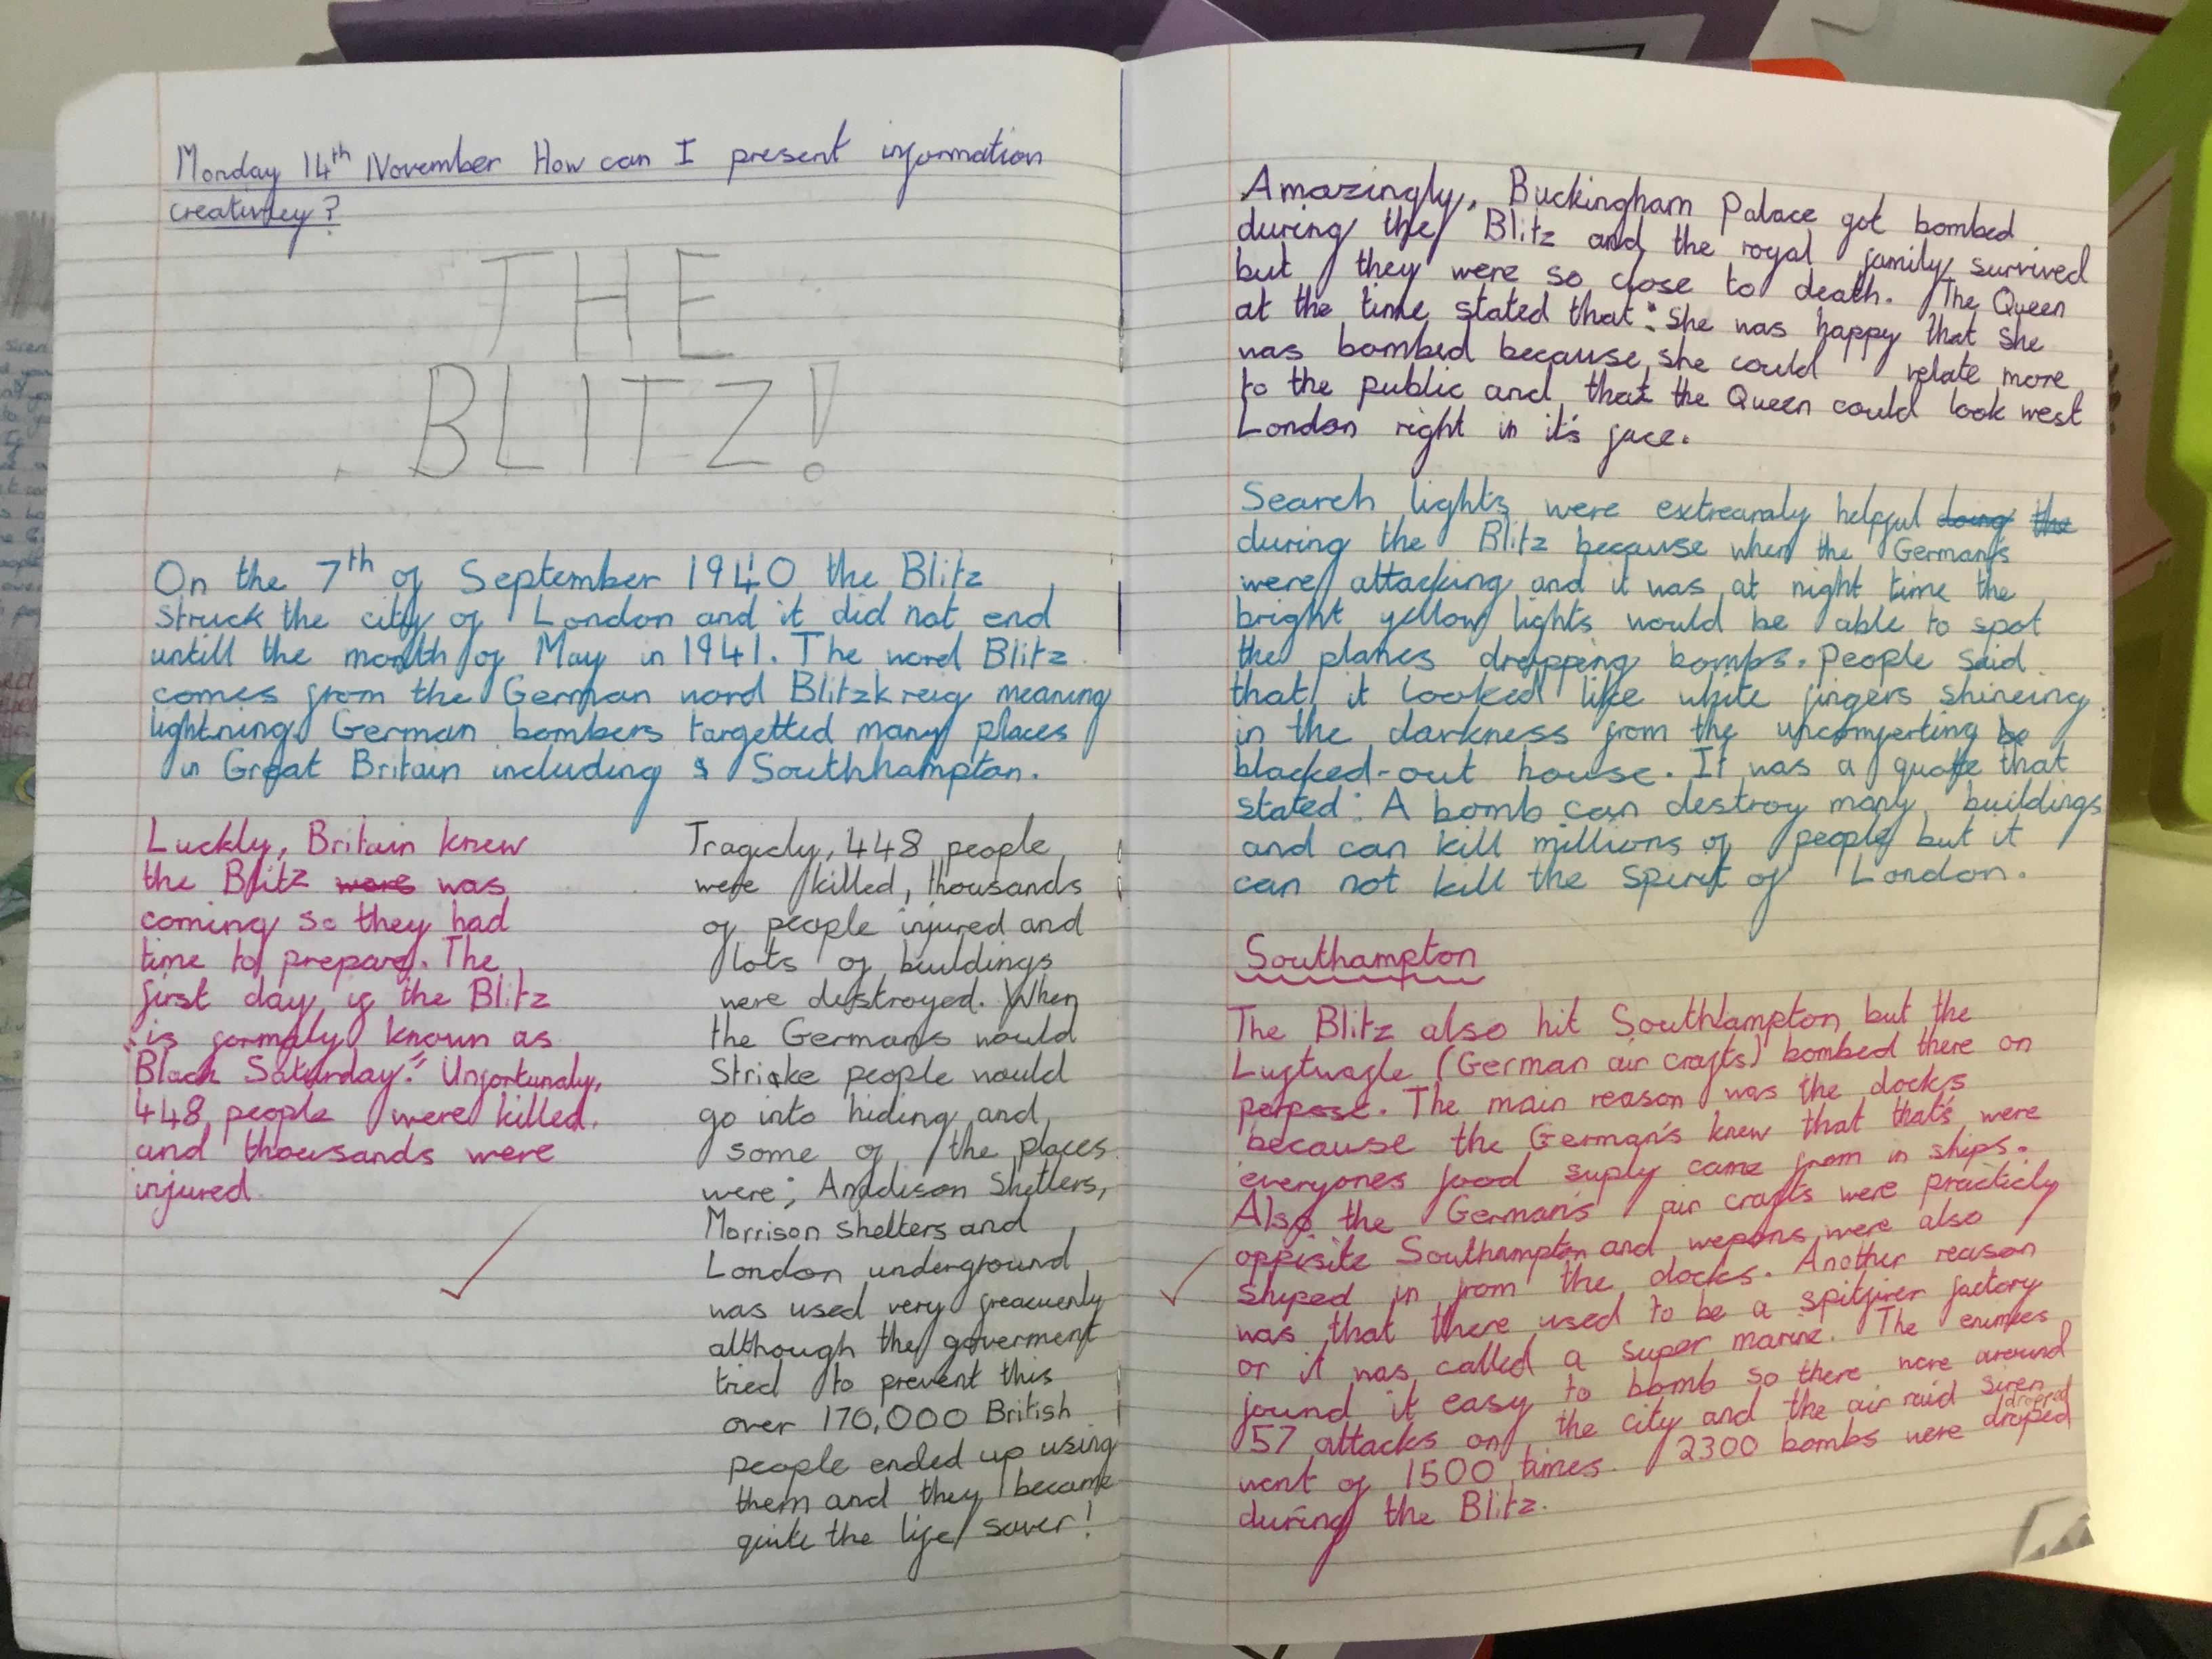 Monday 14th November How can I present information
creativley?
THE
BLITZ!
On the 7th of September 1940 the Blitz
struck the city of London and it did not end
untill the month of May in 1941. The word Blitz
comes from the German word Blitzkreig meaning
lightning. German bombers targetted many places
in Great Britain including Southhampton.
Luckly, Britain knew
the Blitz wore was
coming so they had
time to prepare. The
first day of the Blitz
is formaly known as
"Black Saturday." Unfortunaly,
448 people were killed.
and thousands were
injured
Tragicly, 448 people
were killed, thousands
of people injured and
lots of buildings
were destroyed. When
the Germans would
Strike people would
go into hiding and
some of the places
were; Anddison Shelters,
Morrison shelters and
London underground
was used very freacuenly
although the goverment
tried to prevent this
over 170,000 British
people ended up using
them and they became
quite the life saver!
Amazingly, Buckingham Palace got bombed
during the Blitz and the royal family survived
but they were so close to death. The Queen
at the time stated that: She was happy that she
was bombed because she could relate more
to the public and that the Queen could look west
London right in it's face.
Search lights were extreamly helpful doing the
during the Blitz because when the German's
were attacking and it was at night time the
bright yellow lights would be able to spot
the planes dropping bombs. People said
that it looked like white fingers shineing
in the darkness from the uncomferting bo
blacked-out house. It was a quote that
stated: A bomb can destroy many buildings
and can kill millions of people but it
can not kill the spirit of London.
Southampton
The Blitz also hit Southampton but the
Luftwafle (German air crafts) bombed there on
perpose. The main reason was the dock's
because the German's knew that that's were
everyones food suply came from in ships.
Also the German's air crafts were practicly
oppisite Southampton and wepons were also
shiped in from the docks. Another reason
was that there used to be a spitfirer factory
or it was called a super marine. The enimies
found it easy to bomb so there were around
57 attacks on the city and the air raid siren
went of 1500 times. 2300 bombs were draped dropped
during the Blitz.